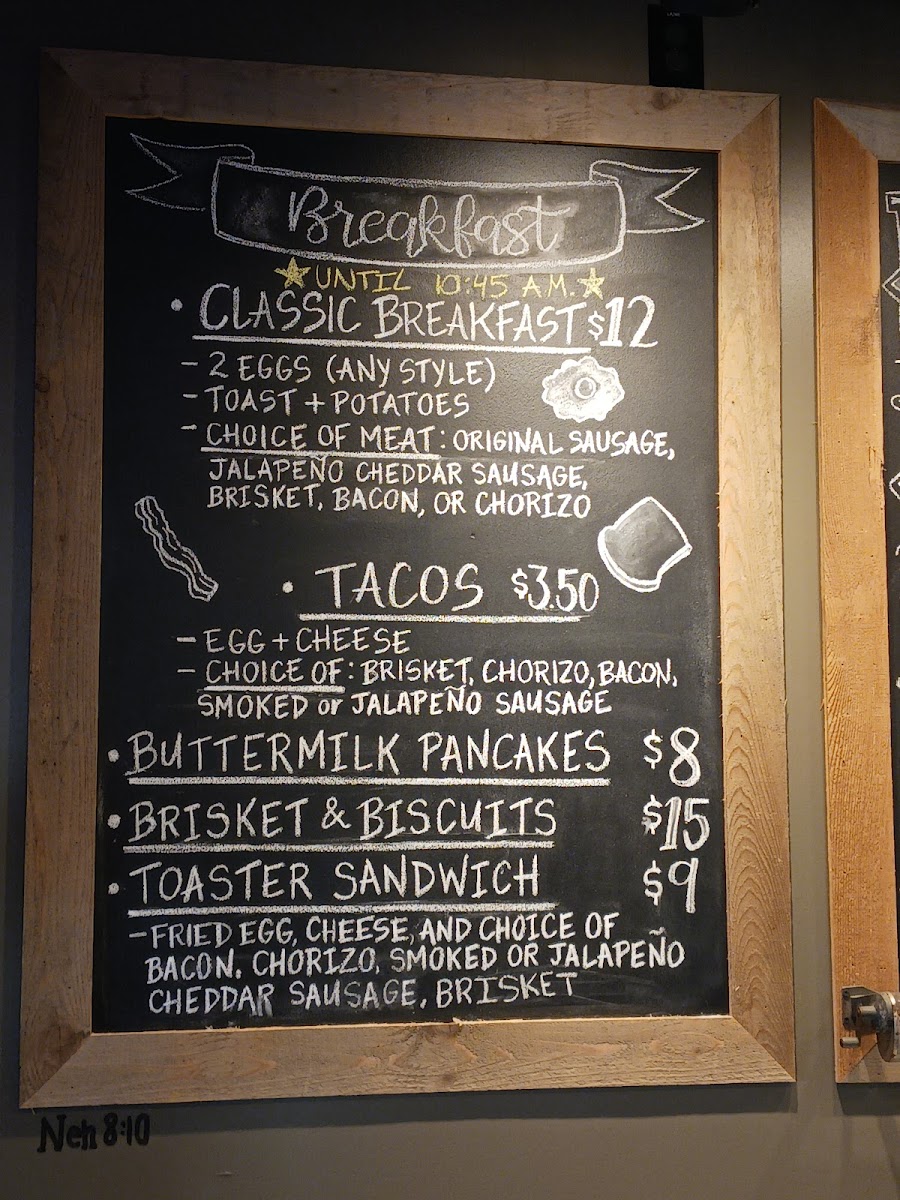 Breakfast
UNTIL 10:45 A.M.
• CLASSIC BREAKFAST $12
- 2 EGGS (ANY STYLE)
- TOAST + POTATOES
- CHOICE OF MEAT: ORIGINAL SAUSAGE,
JALAPEÑO CHEDDAR SAUSAGE,
BRISKET, BACON, OR CHORIZO
• TACOS $3.50
- EGG + CHEESE
- CHOICE OF: BRISKET, CHORIZO, BACON,
SMOKED or JALAPEÑO SAUSAGE
• BUTTERMILK PANCAKES $8
• BRISKET & BISCUITS $15
• TOASTER SANDWICH $9
- FRIED EGG, CHEESE, AND CHOICE OF
BACON. CHORIZO, SMOKED OR JALAPEÑO
CHEDDAR SAUSAGE, BRISKET
Neh 8:10